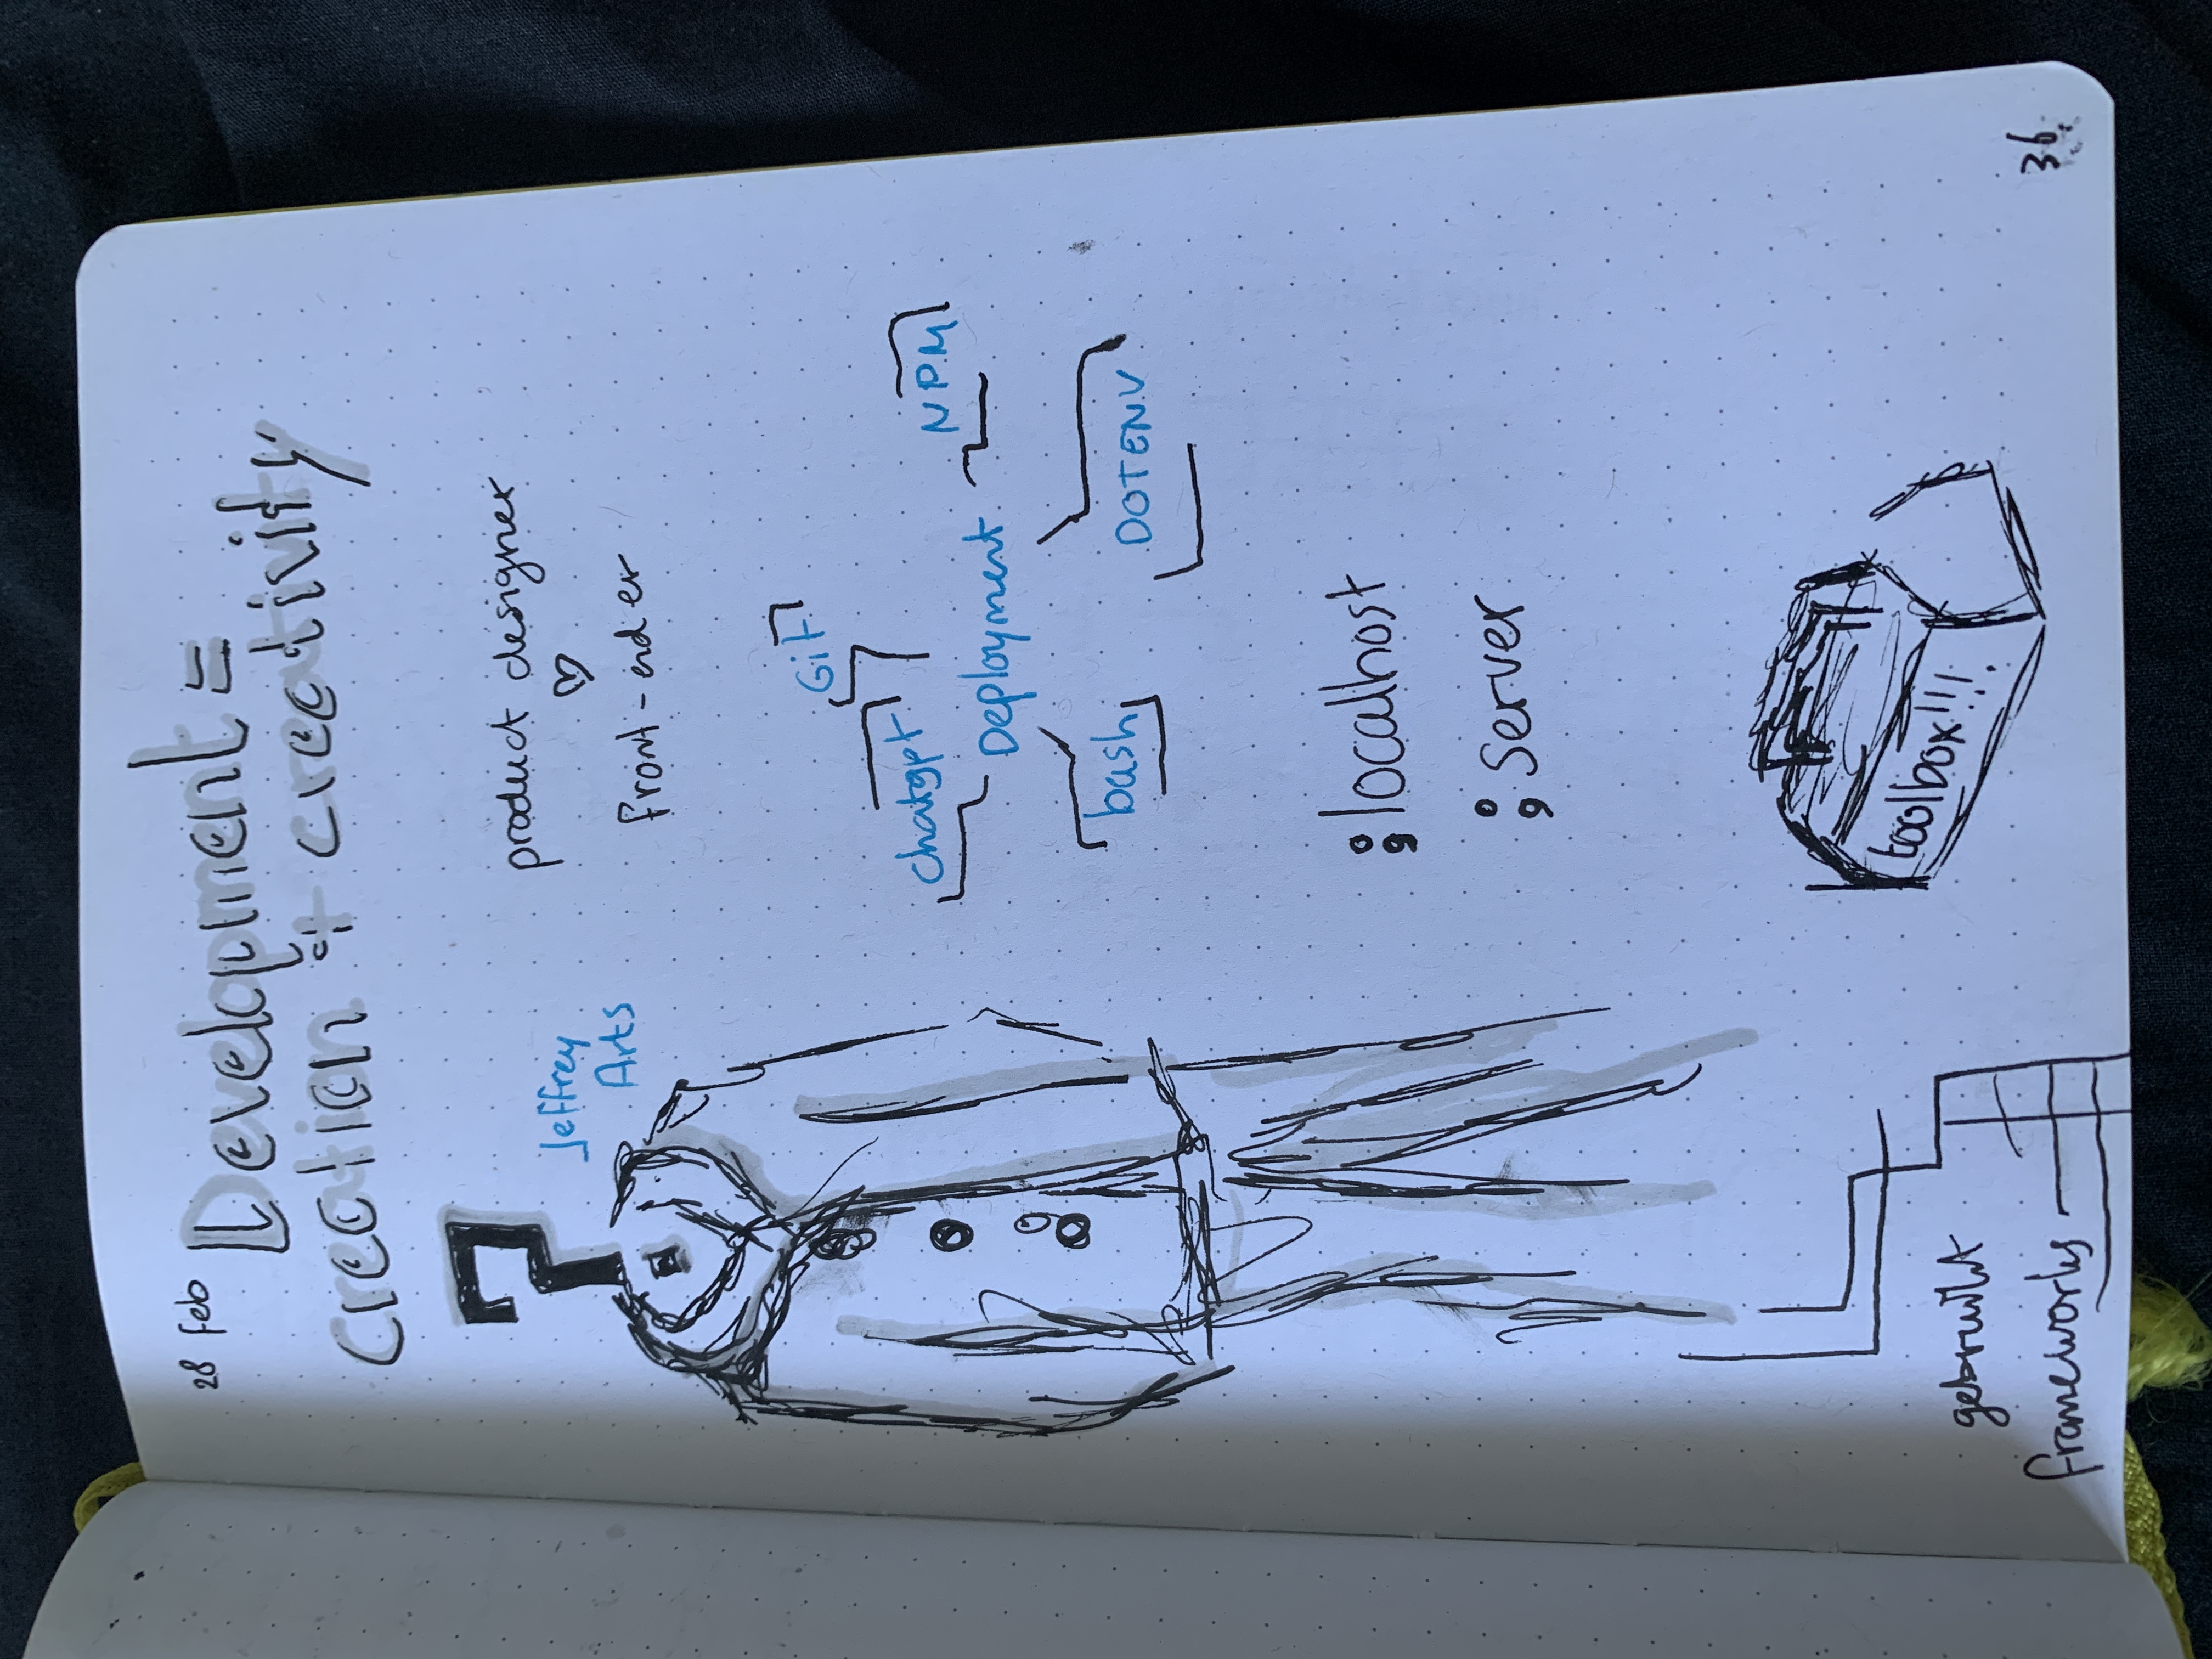 28 feb
Development =
creation & creativity
?
Jeffrey
Arts
product designer
♡
front-ender
Git
chatgpt
NPM
Deployment
bash
DOTENV
;localhost
;server
toolbox!!!
gebruikt
frameworks
36